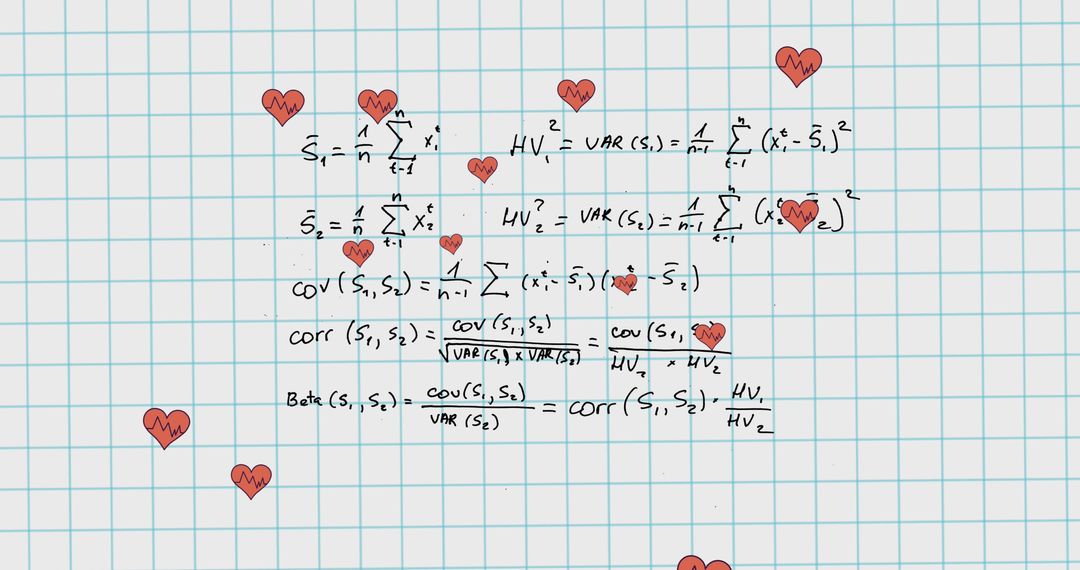 S̄₁ = 1/n Σⁿ_t-1 x₁ᵗ HV₁² = VAR (S₁) = 1/n-1 Σⁿ_t-1 (x₁ᵗ - S̄₁)²
S̄₂ = 1/n Σⁿ_t-1 x₂ᵗ HV₂? = VAR (S₂) = 1/n-1 Σⁿ_t-1 (x₂ᵗ ₂)²
cov (S₁, S₂) = 1/n-1 Σ (x₁ᵗ - S̄₁) ( ᵗ - S̄₂)
corr (S₁, S₂) = cov (S₁, S₂) / √VAR (S₁) x VAR (S₂) = cov (S₁, / HV₂ x HV₂
Beta (S₁, S₂) = cov (S₁, S₂) / VAR (S₂) = corr (S₁, S₂) · HV₁ / HV₂